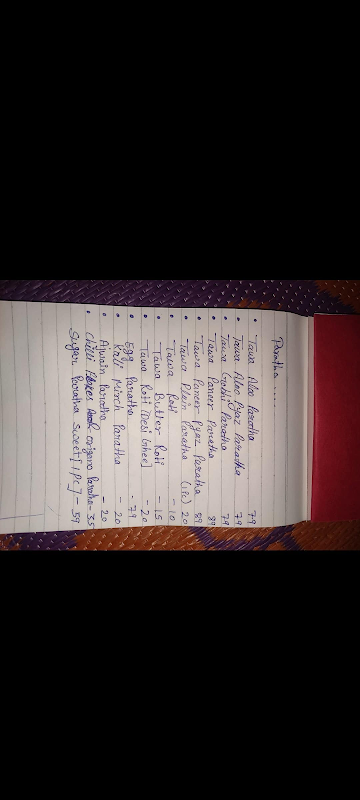 Paratha.....
• Tawa Aloo Paratha 79
• Tawa Aloo Pyaz Paratha 79
• Tawa Gobhi Paratha 79
• Tawa Paneer Paratha 89
• Tawa Paneer Pyaz Paratha 89
• Tawa Plain Paratha (1Pc) 20
• Tawa Roti - 10
• Tawa Butter Roti - 15
• Tawa Roti [Desi Ghee] - 20
• Egg Paratha - 79
• Kali Mirch Paratha - 20
• Ajwain Paratha - 20
• Chilli origano Paratha - 35
Sugar Paratha Sweet [1PC] - 59